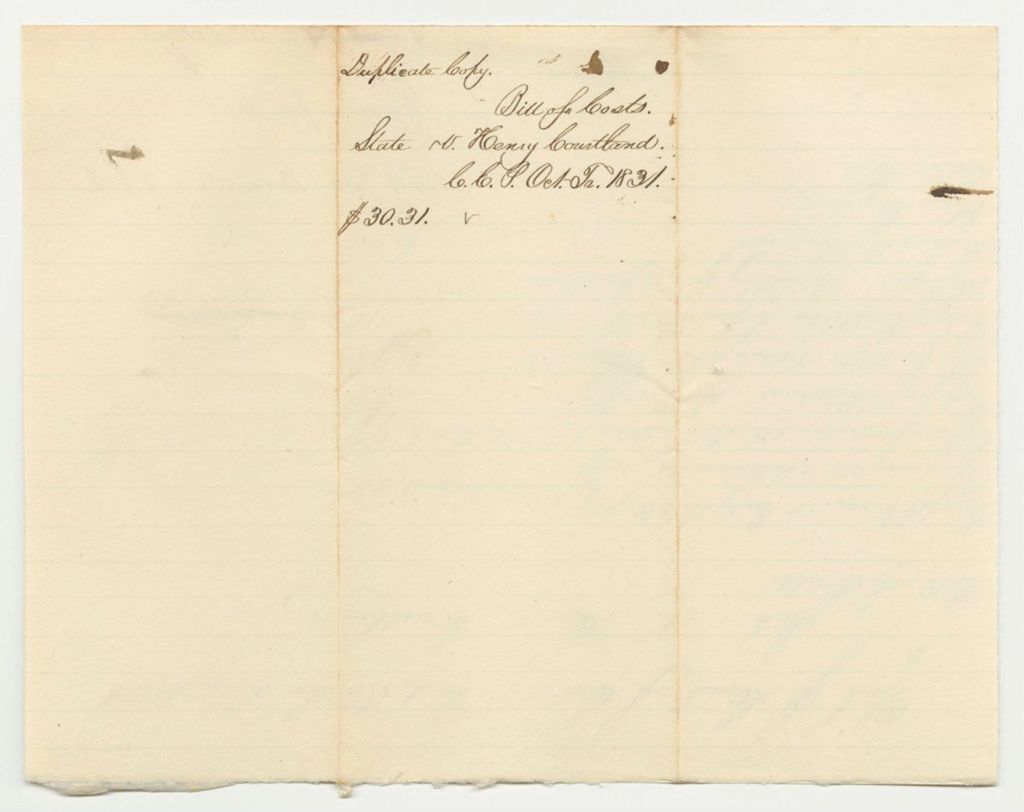 Duplicate Copy.
Bill of Costs.
State v. Henry Courtland.
C. C. P. Oct. Tr. 1831.
$30.31.